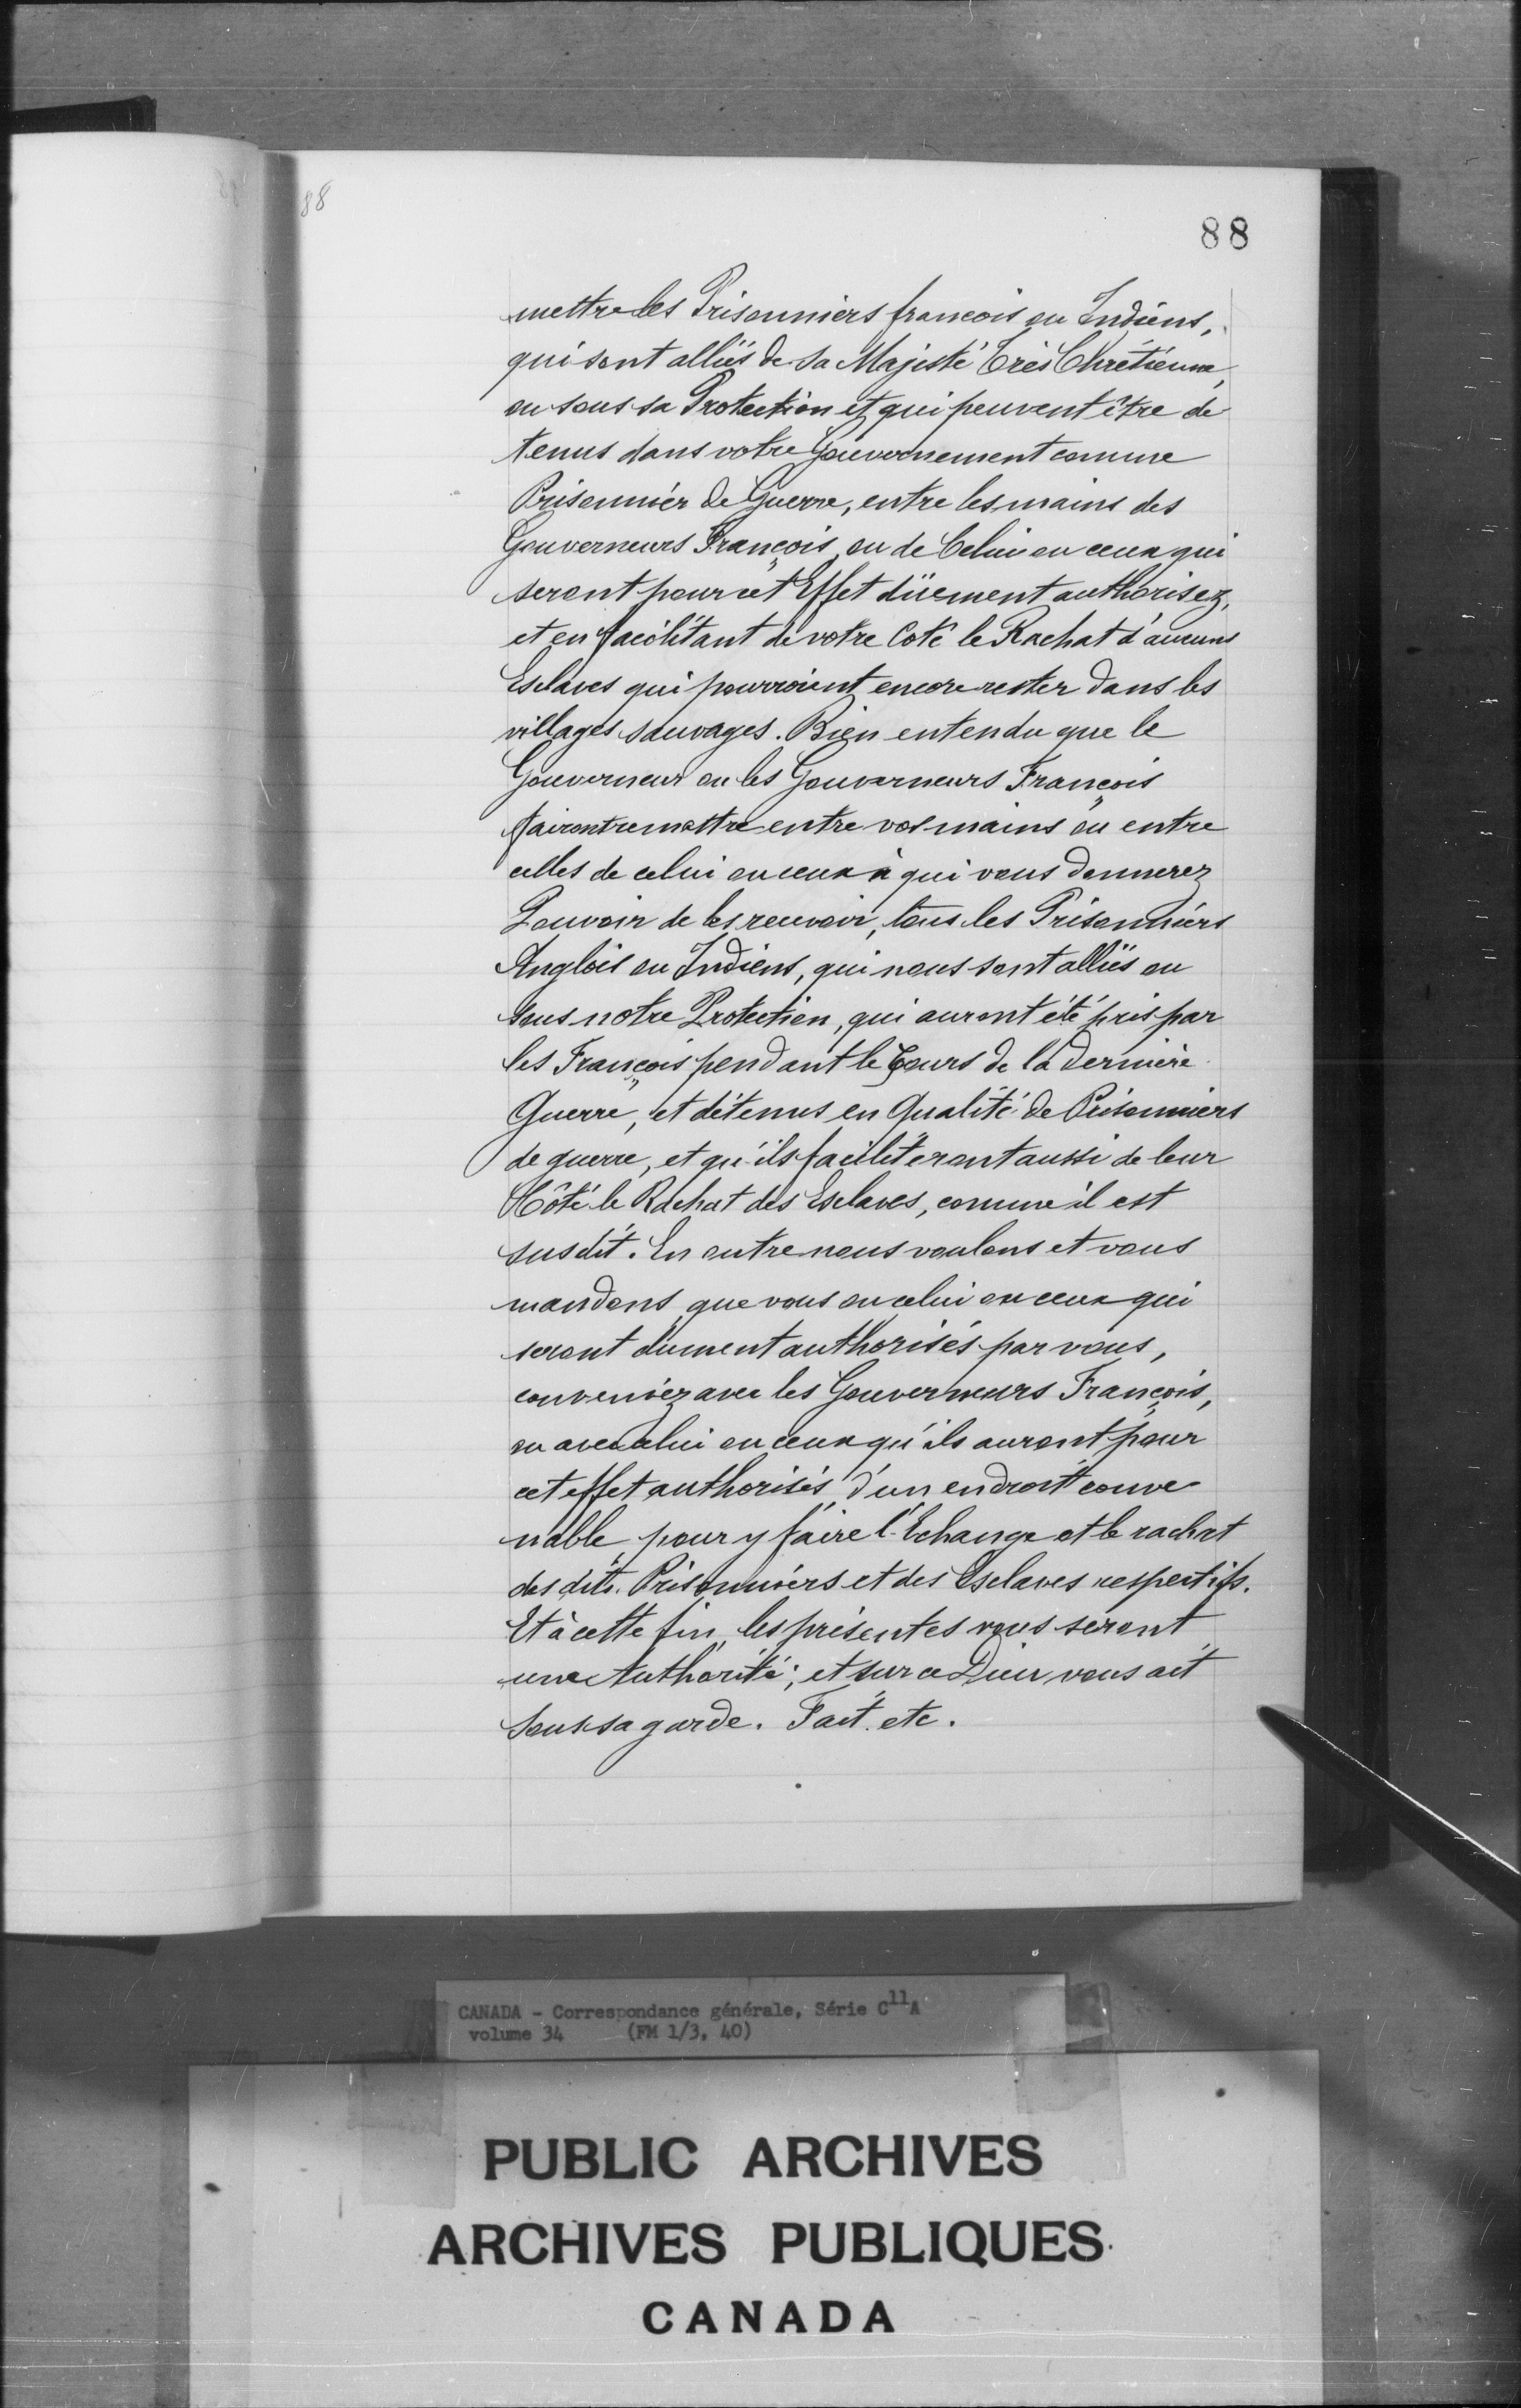 88
88
mettre les Prisonniers françois ou Indiens,
qui sont alliés de sa Majesté Très Chrétienne,
ou sous sa Protection et qui peuvent être de
tenus dans votre Gouvernement comme
Prisonnier de Guerre, entre les mains des
Gouverneurs François, ou de Celui ou ceux qui
seront pour cet Effet düement authorisez,
et en facilitant de votre Coté le Rachat d'aucuns
Esclaves qui pourroient encore rester dans les
villages sauvages. Bien entendu que le
Gouverneur ou les Gouverneurs François
fairont remettre entre vos mains ou entre
celles de celui ou ceux à qui vous donnerez
Pouvoir de les recevoir, tous les Prisonniers
Anglois ou Indiens, qui nous sont alliés ou
sous notre Protection, qui auront été pris par
les François pendant le Cours de la dernière
Guerre, et détenus en Qualité de Prisonniers
de guerre, et qu'ils faciliteront aussi de leur
Côté le Rachat des Esclaves, comme il est
susdit. En outre nous voulons et vous
mandons, que vous ou celui ou ceux qui
seront dument authorisés par vous,
conveniez avec les Gouverneurs François,
ou avec celui ou ceux qu'ils auront pour
cet effet authorisés, d'un endroit conve
nable, pour y faire l'Echange et le rachat
des dits. Prisonniers et des Esclaves respectifs.
Et à cette fin, les présentes vous seront
une Authorité; et sur ce Dieu vous ait
sous sa garde. Fait. etc.
CANADA - Correspondance générale, Série C11A
volume 34 (FM 1/3, 40)
PUBLIC ARCHIVES
ARCHIVES PUBLIQUES
CANADA